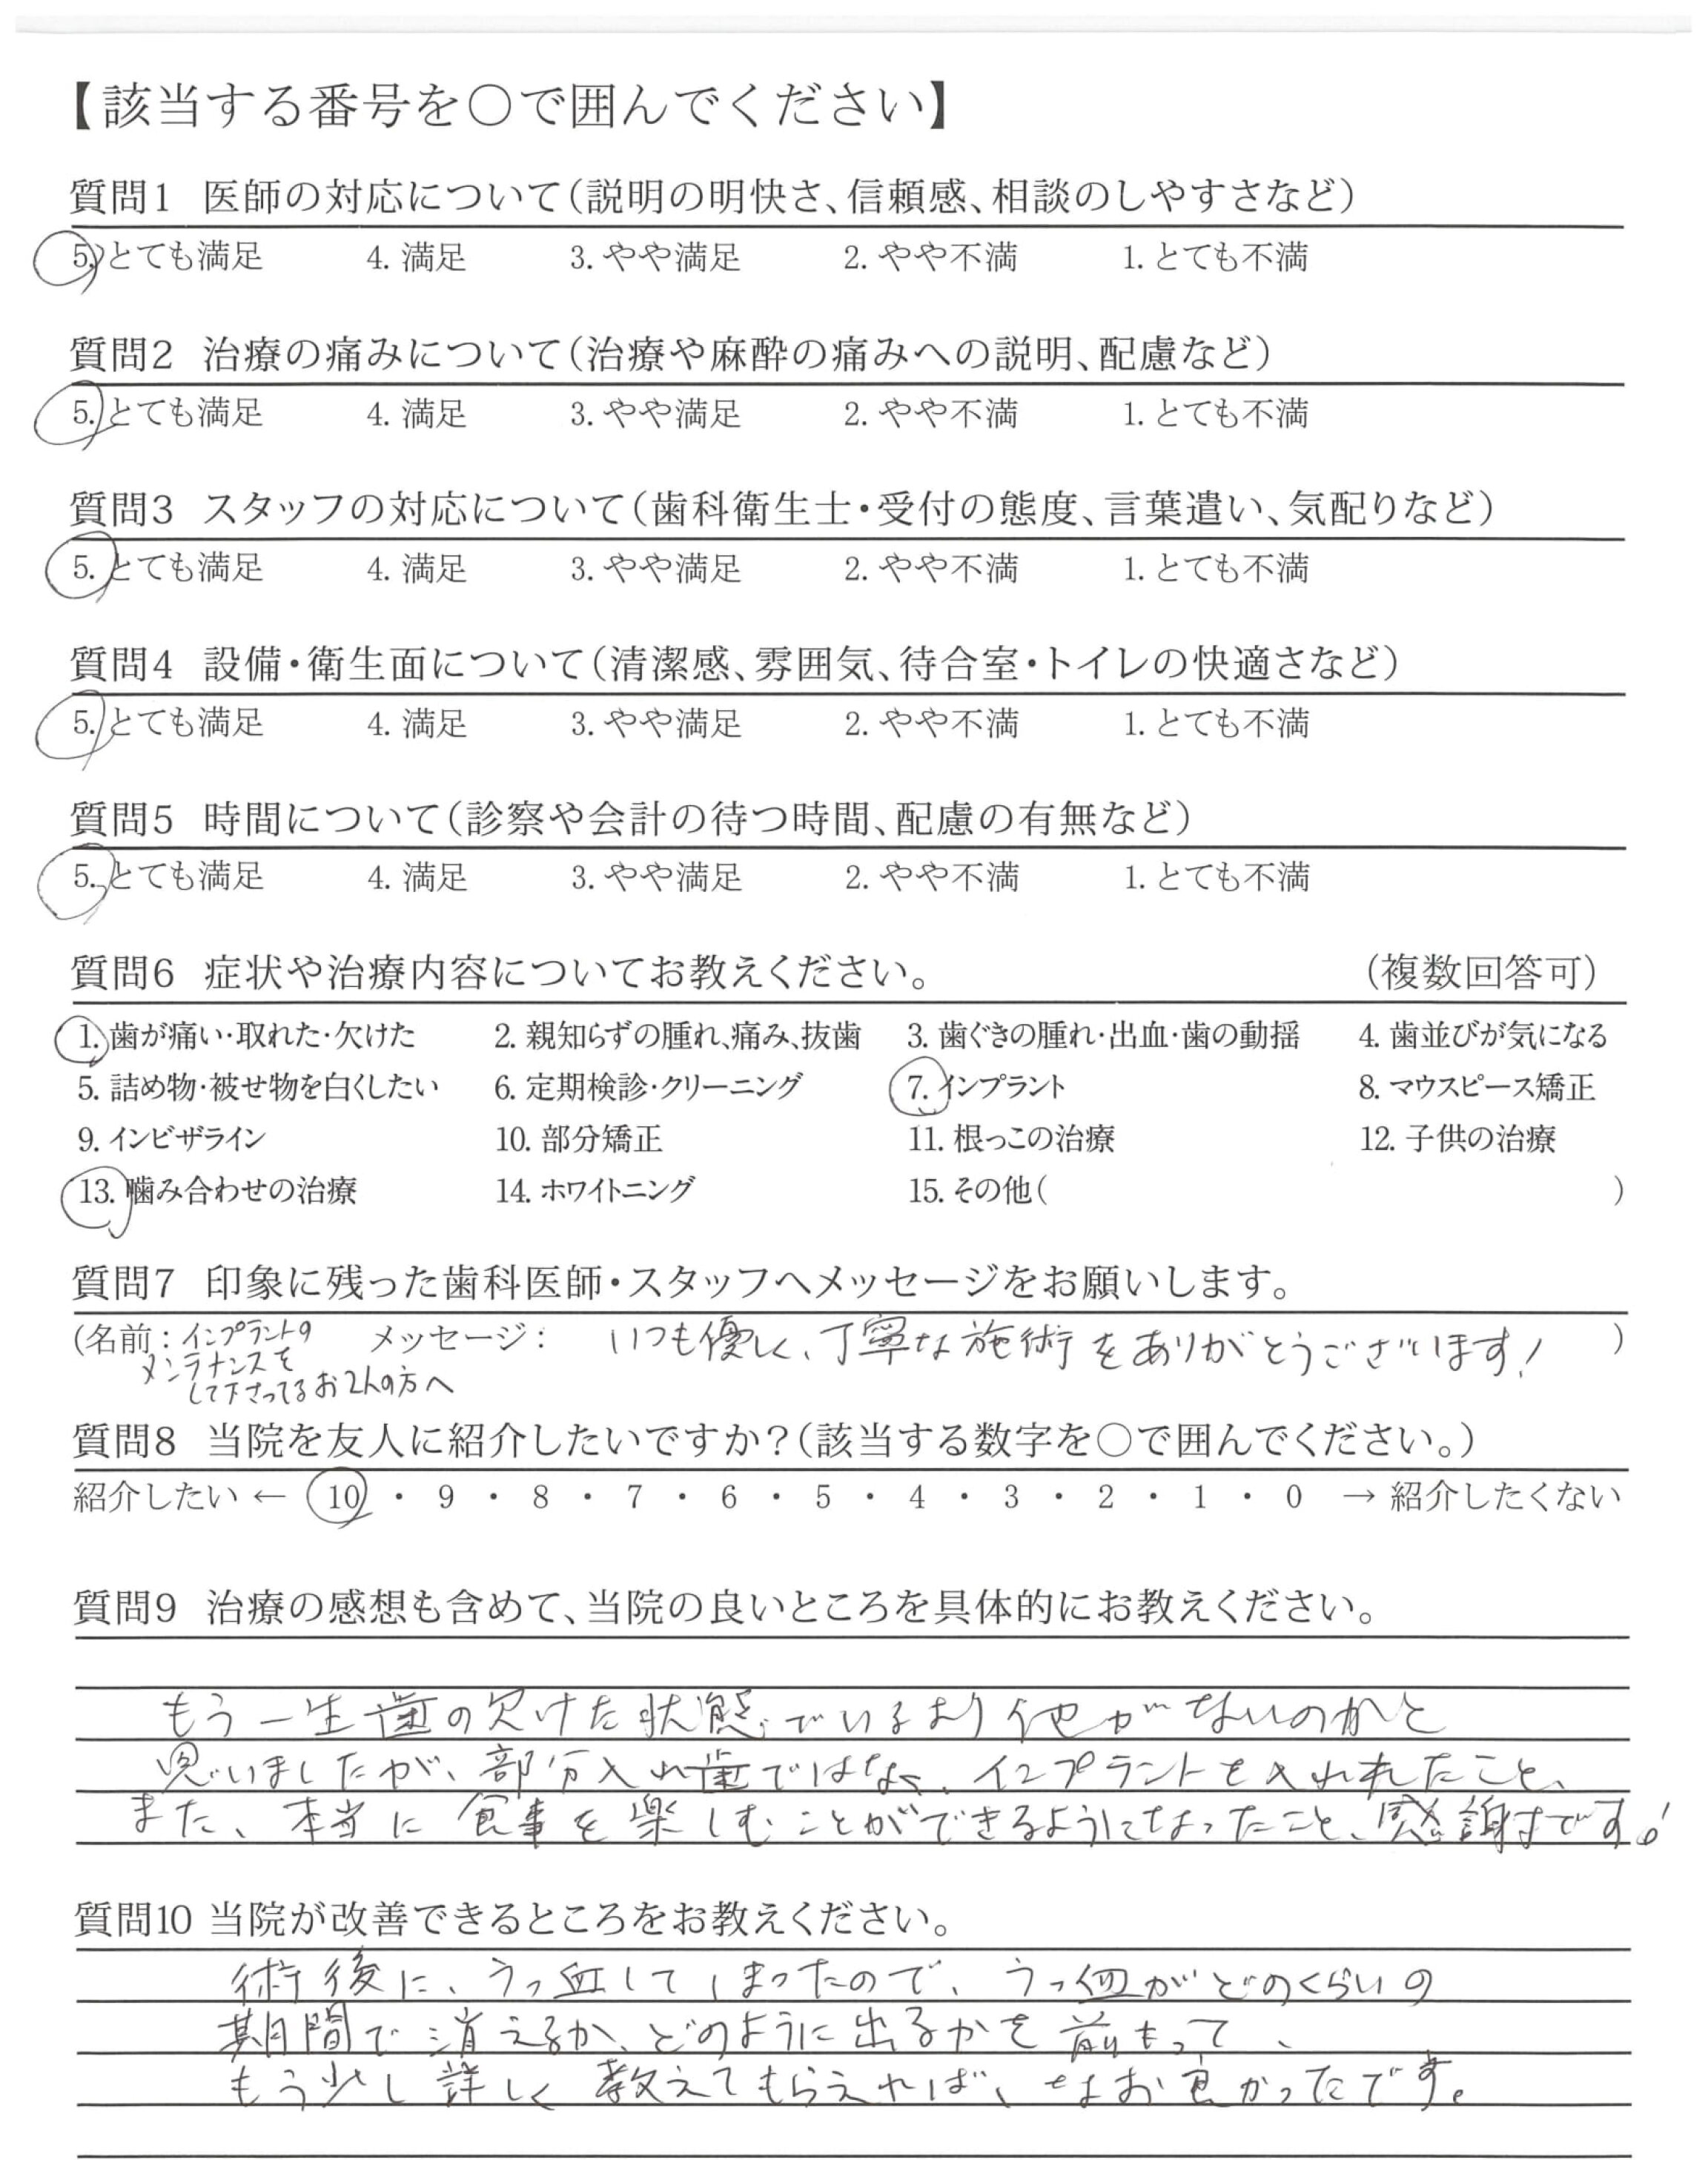 【該当する番号を〇で囲んでください】
質問1 医師の対応について(説明の明快さ、信頼感、相談のしやすさなど)
5. とても満足 4. 満足 3. やや満足 2. やや不満 1. とても不満
質問2 治療の痛みについて(治療や麻酔の痛みへの説明、配慮など)
5. とても満足 4. 満足 3. やや満足 2. やや不満 1. とても不満
質問3 スタッフの対応について(歯科衛生士・受付の態度、言葉遣い、気配りなど)
5. とても満足 4. 満足 3. やや満足 2. やや不満 1. とても不満
質問4 設備・衛生面について(清潔感、雰囲気、待合室・トイレの快適さなど)
5. とても満足 4. 満足 3. やや満足 2. やや不満 1. とても不満
質問5 時間について(診察や会計の待つ時間、配慮の有無など)
5. とても満足 4. 満足 3. やや満足 2. やや不満 1. とても不満
質問6 症状や治療内容についてお教えください。 (複数回答可)
1. 歯が痛い・取れた・欠けた 2. 親知らずの腫れ、痛み、抜歯 3. 歯ぐきの腫れ・出血・歯の動揺 4. 歯並びが気になる
5. 詰め物・被せ物を白くしたい 6. 定期検診・クリーニング 7. インプラント 8. マウスピース矯正
9. インビザライン 10. 部分矯正 11. 根っこの治療 12. 子供の治療
13. 噛み合わせの治療 14. ホワイトニング 15. その他( )
質問7 印象に残った歯科医師・スタッフへメッセージをお願いします。
(名前: インプラントの メッセージ: いつも優しく、丁寧な施術をありがとうございます! )
メンテナンスを
して下さってるお2人の方へ
質問8 当院を友人に紹介したいですか?(該当する数字を〇で囲んでください。)
紹介したい ← 10 ・ 9 ・ 8 ・ 7 ・ 6 ・ 5 ・ 4 ・ 3 ・ 2 ・ 1 ・ 0 → 紹介したくない
質問9 治療の感想も含めて、当院の良いところを具体的にお教えください。
もう一生歯の欠けた状態でいるより他がないのかと
思いましたが、部分入れ歯ではなく、インプラントを入れれたこと、
また、本当に食事を楽しむことができるようになったこと、感謝までです!
質問10 当院が改善できるところをお教えください。
術後に、うっ血してしまったので、うっ血がどのくらいの
期間で消えるか、どのように出るかを前もって、
もう少し詳しく教えてもらえれば、なお良かったです。